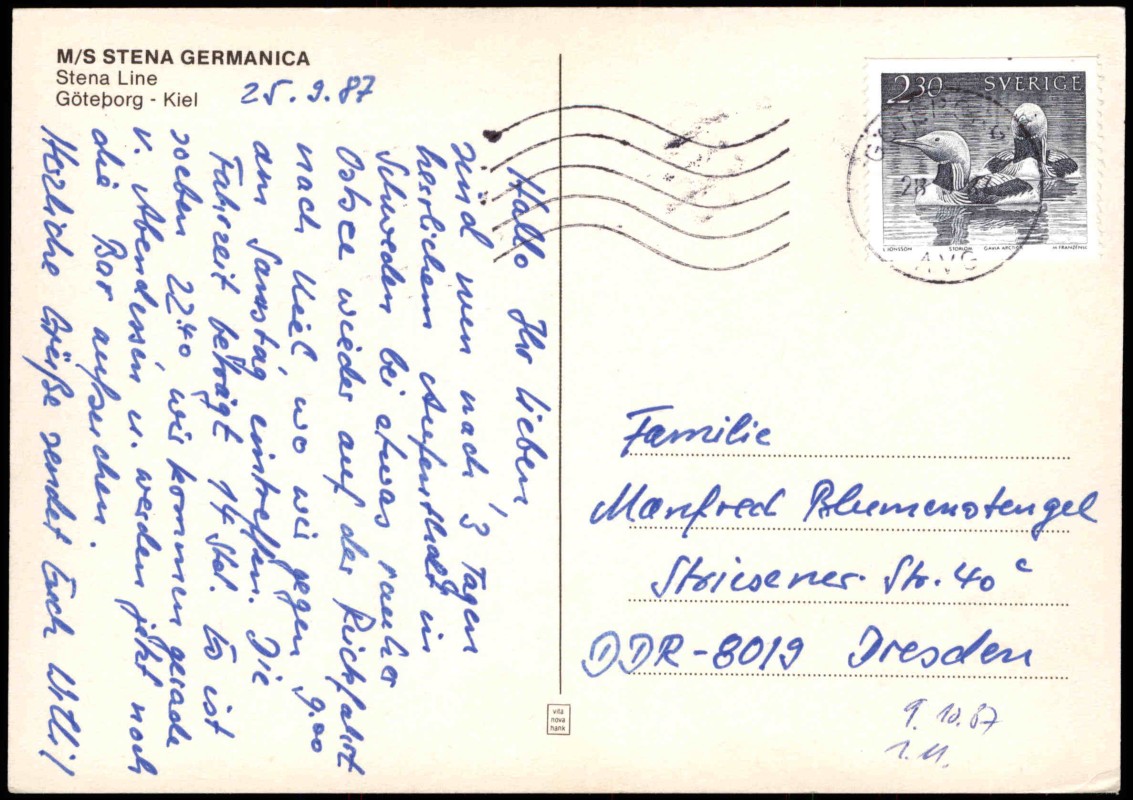 M/S STENA GERMANICA
Stena Line
Göteborg - Kiel
25.9.87
Hallo Ihr lieben,
sind nun nach 3 Tagen
herrlichem Aufenthalt in
Schweden bei etwas rauher
Ostsee wieder auf der Rückfahrt
nach Kiel, wo wir gegen 9.00
am Samstag eintreffen. Die
Fahrzeit beträgt 14 Std. Es ist
soeben 22.40 wir kommen gerade
v. Abendessen u. werden jetzt noch
die Bar aufsuchen.
Herzliche Grüße sendet Euch Willi!
2.30 SVERIGE
STORLOM GAVIA ARCTICA
M. FRANZÉN SC
GÖTEBORG
28
AVG
Familie
Manfred Blumenstengel
Striesener Str. 40 c
DDR-8019 Dresden
9.10.87
vita
nova
hank